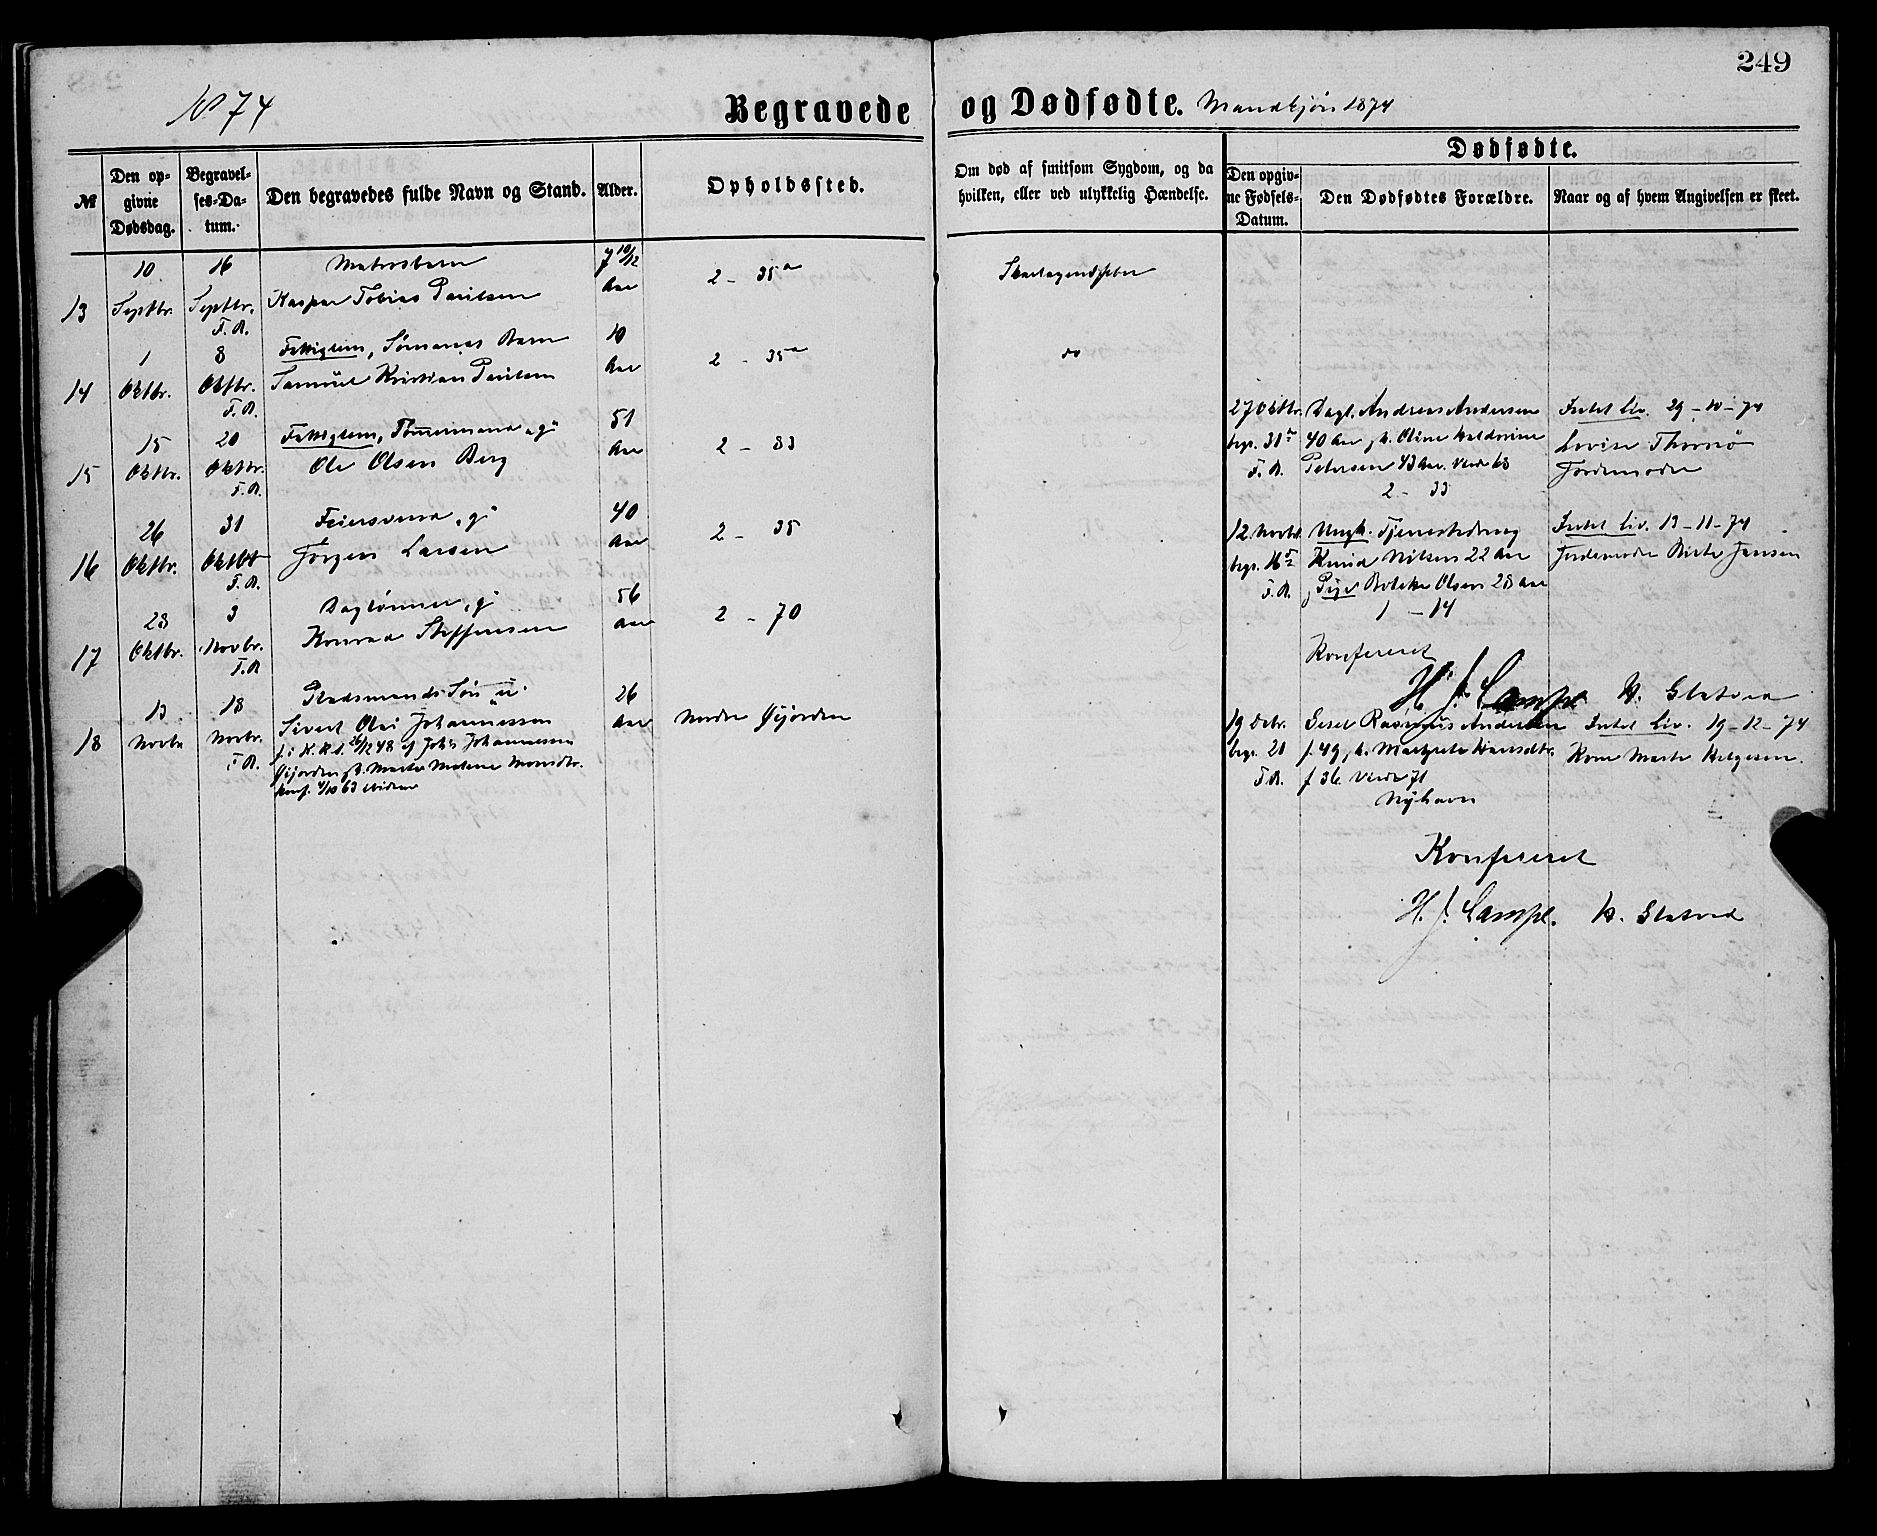 249
1874
Begravede og Dødfødte. Mandkjøn 1874
№
Den opgivne Dødsdag.
Begravelses-Datum.
Den begravedes fulde Navn og Stand.
Alder.
Opholdssted.
Om død af smitsom Sygdom, og da
hvilken, eller ved ulykkelig Hændelse.
Dødfødte.
Den opgivne Fødsels-Datum.
Den Dødfødtes Forældre.
Naar og af hvem Angivelsen er skeet.
10 16 Matrosbarn 7 10/12
13 Septbr. Septbr. Kaspar Tobias Paulsen Aar 2 - 35a Skarlagensfeber
F. A.
1 8 Fattiglem, Sømands Barn 10
14 Oktbr. Oktbr. Samuel Kristian Paulsen Aar 2 - 35a do
F. A.
15 20 Fattiglem, Tømmermand "g" 51
15 Oktbr. Oktbr. Ole Olsen Berg Aar 2 - 83
F. A.
26 31 Feiersvend "g" 40
16 Oktbr. Oktbr. Jørgen Larsen Aar 2 - 35
F. A.
28 3 Daglønner "g" 56
17 Oktbr. Novbr. Konrad Steffensen Aar 2 - 70
F. A.
13 18 Pladsmands Søn "u" 26
18 Novbr Novbr. Sivert Olai Johannessen Aar Nordre Øijorden
F. A. f. i K. K. d. 26/12 48 af Johs Johannessen
Øijorden, h. Marte Malene Monsdtr.
konf. 4/10 63
27 Oktbr. Dagl. Andreas Andersen Intet Liv. 29-10-74
begr. 31te 40 Aar, h. Oline Petersen 43 Aar. Viede 68 Lovise Thorsnø
F. A. 2 - 33 Jordemoder
12 Novbr. Ungk. Tjenestedreng Intet Liv. 13-11-74
begr. 16de Knud Nilsen 22 Aar Jordemoder Birte Jansen
F. A. Pige Bolette Olsen 28 Aar
1 - 14
Konfereret
H. J. Lampe. K. Gløtved
19 Debr. Rasmus Andersen Intet Liv. 19-12-74
begr. 21 f. 49, h. Margrete Hansdtr. Kone Marte Helgesen.
F. A. f 36. Viede 71
Nyhavn
Konfereret
H. J. Lampe. K. Gløtved